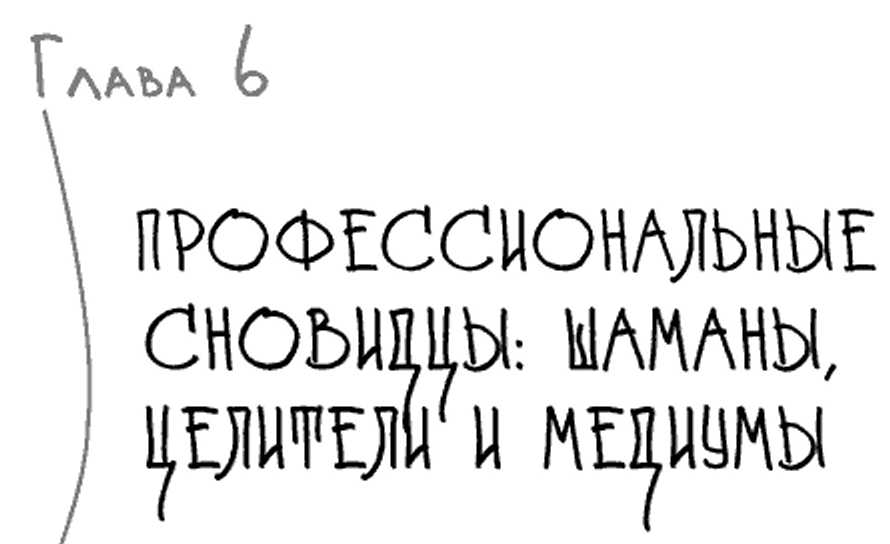 Глава 6
ПРОФЕССИОНАЛЬНЫЕ
СНОВИДЦЫ: ШАМАНЫ,
ЦЕЛИТЕЛИ И МЕДИУМЫ